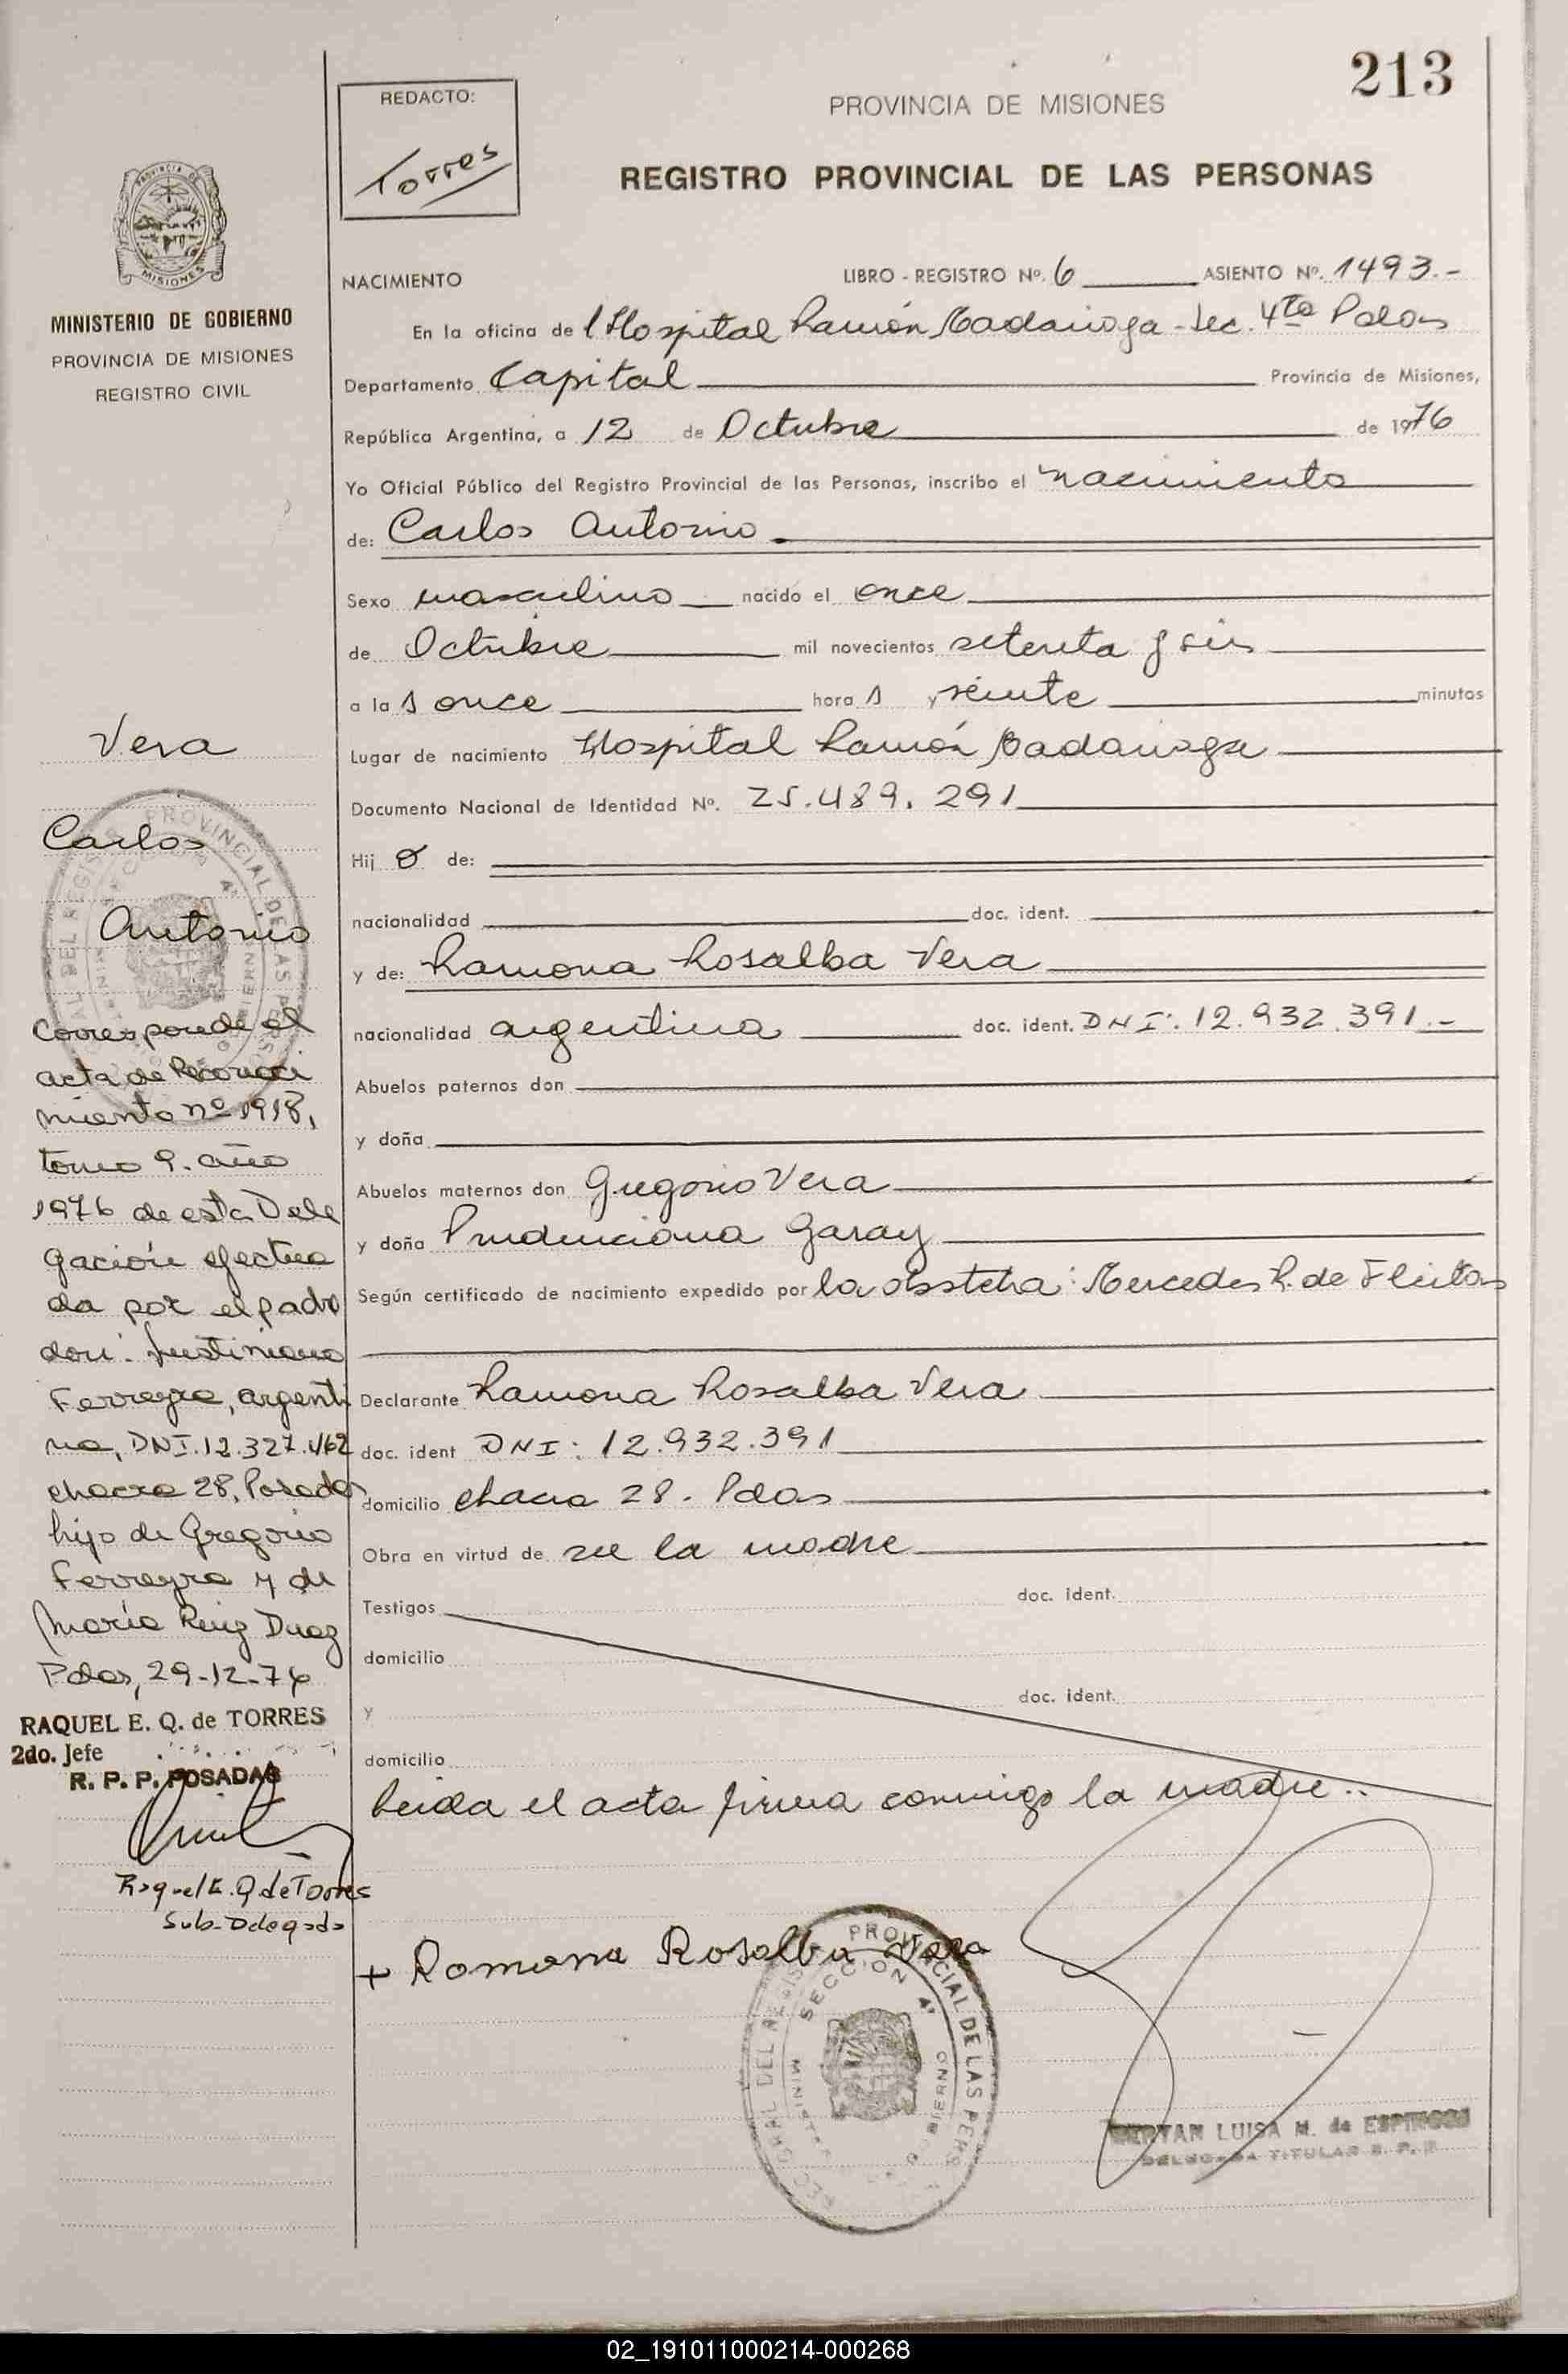 213
REDACTO:
Torres
PROVINCIA DE MISIONES
REGISTRO PROVINCIAL DE LAS PERSONAS
PROVINCIA DE
MISIONES
MINISTERIO DE GOBIERNO
PROVINCIA DE MISIONES
REGISTRO CIVIL
NACIMIENTO LIBRO - REGISTRO Nº. 6 ASIENTO Nº. 1493.-
En la oficina del Hospital Ramón Madariaga - Sec. 4ta Pdas
Departamento Capital Provincia de Misiones,
República Argentina, a 12 de Octubre de 1976
Yo Oficial Público del Registro Provincial de las Personas, inscribo el nacimiento
de: Carlos Antonio.
Sexo masculino nacido el once
de Octubre mil novecientos setenta y seis
a las once horas y veinte minutos
Lugar de nacimiento Hospital Ramón Madariaga
Documento Nacional de Identidad Nº. 25.489.291
Hijo de:
nacionalidad doc. ident.
y de: Ramona Rosalba Vera
nacionalidad argentina doc. ident. DNI: 12.932.391.-
Abuelos paternos don
y doña
Abuelos maternos don Gregorio Vera
y doña Prudenciana Garay
Según certificado de nacimiento expedido por la obstetra: Mercedes R. de Fleitas
Declarante Ramona Rosalba Vera
doc. ident DNI: 12.932.391
domicilio chacra 28. Pdas
Obra en virtud de ser la madre
Testigos doc. ident.
domicilio
y doc. ident.
domicilio
Leida el acta firma conmigo la madre..
+ Romona Rosalba Vera
PROVINCIAL DE LAS PERS
SECCION 4ª
LUISA M. de ESPINOSA
DELEGADA TITULAR R. P. P.
Vera
Carlos
Antonio
Corresponde el
acta de Reconoci
miento nº 1918,
tomo 9. año
1976 de esta Dele
gación efectua
da por el padre
don: Justiniano
Ferreyra, argenti
no, DNI. 12.327.462
chacra 28, Posadas
hijo de Gregorio
Ferreyra y de
María Ruiz Diaz
Pdas, 29-12-76
RAQUEL E. Q. de TORRES
2do. Jefe
R. P. P. POSADAS
Raquel E. Q de Torres
Sub-Delegada
02_191011000214-000268